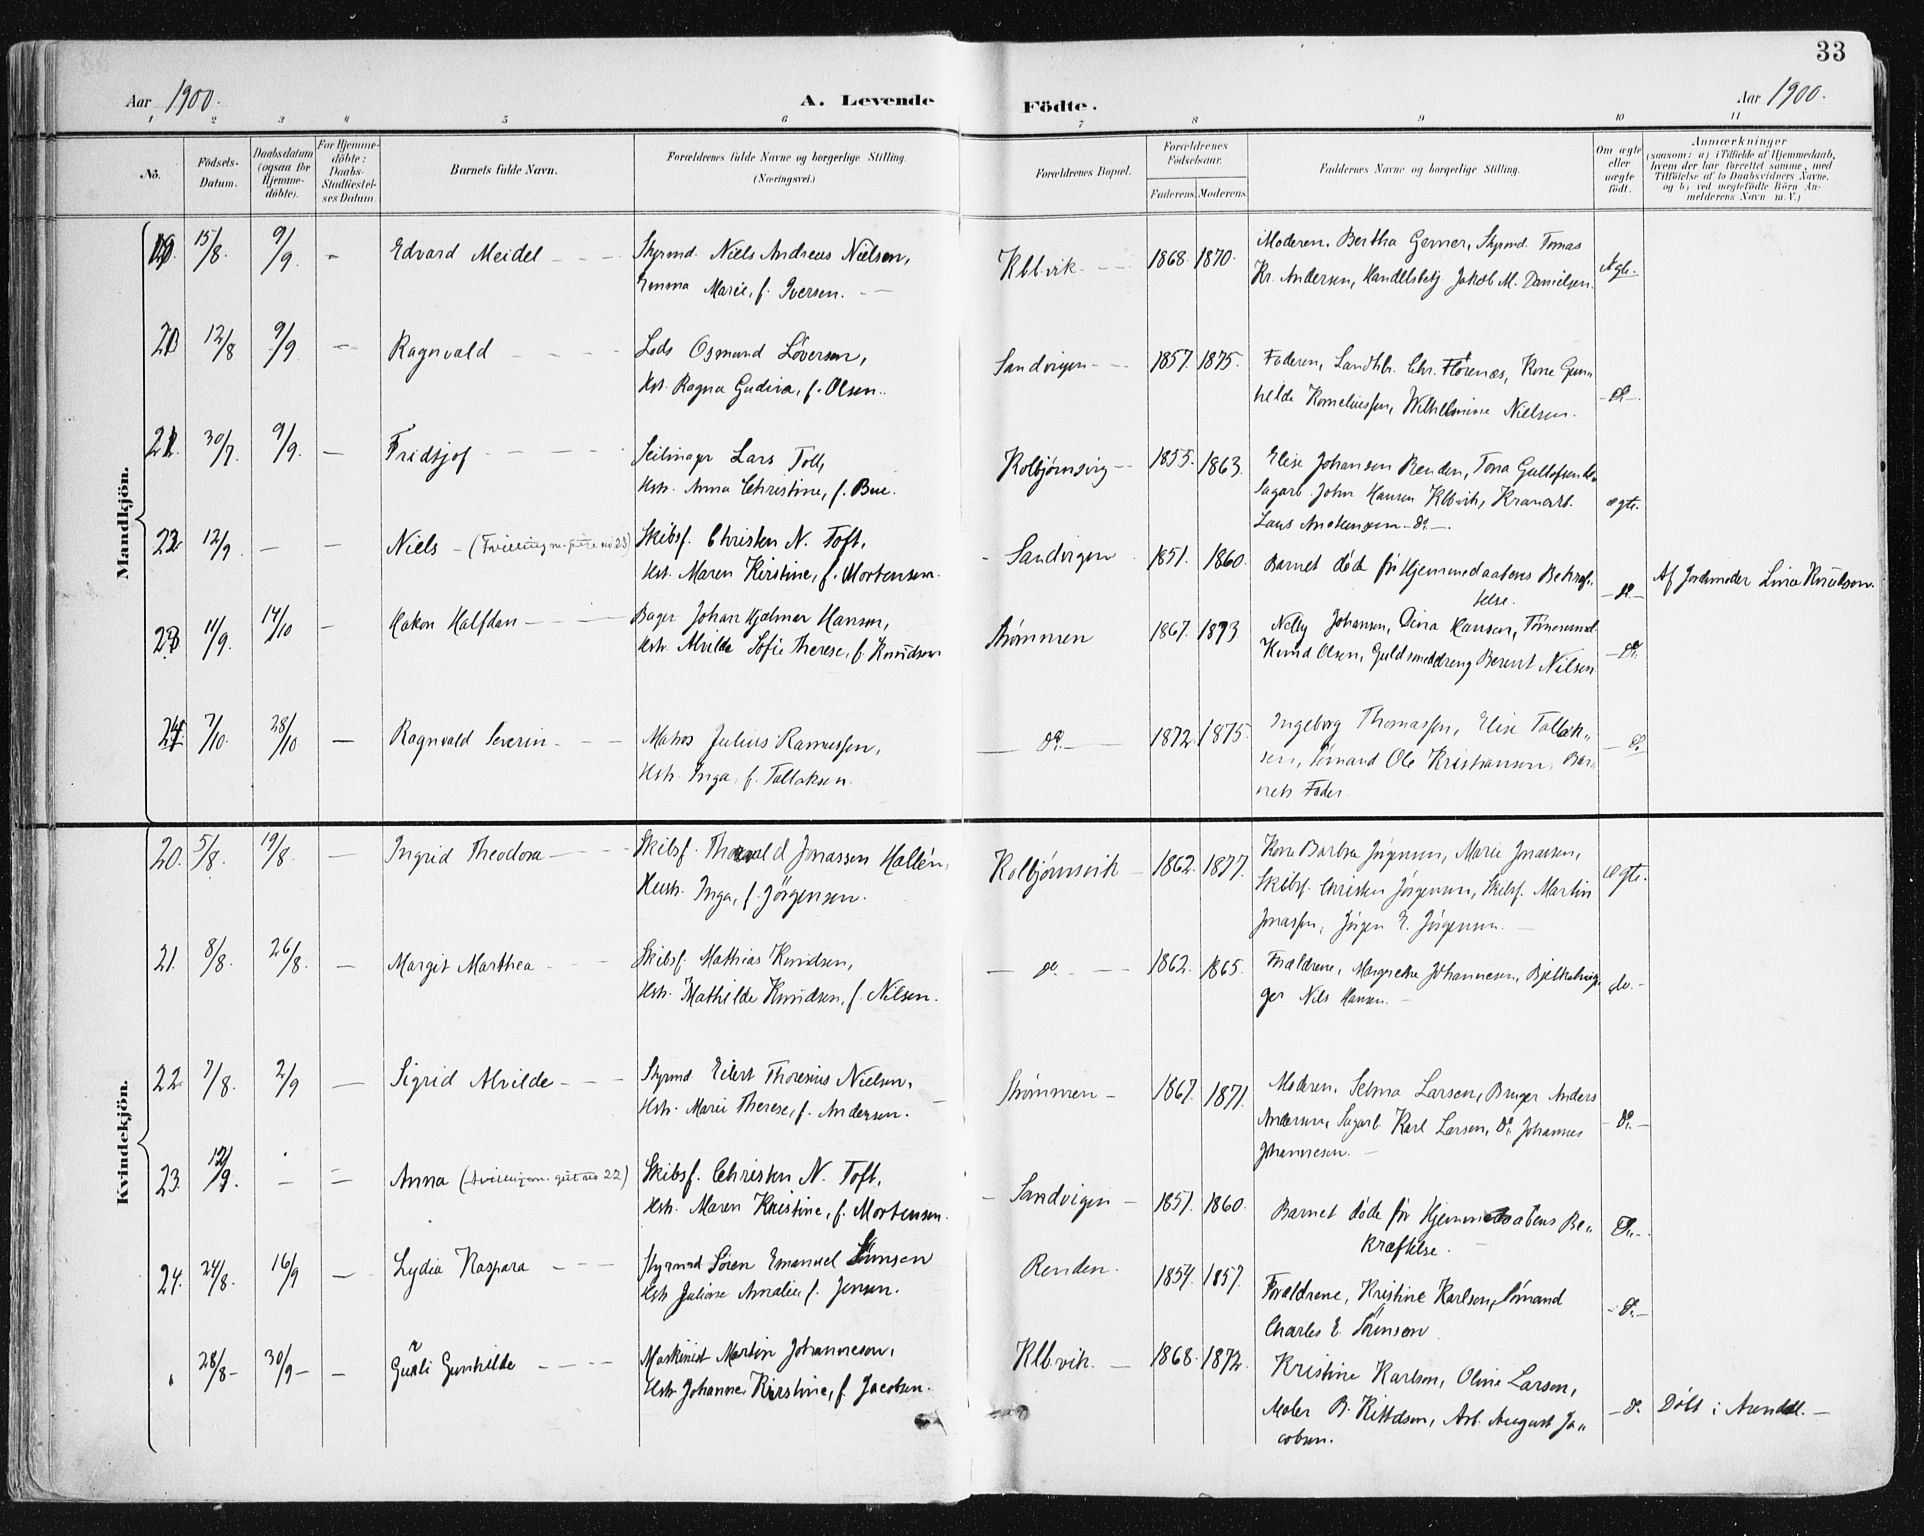 33
Aar 1900.
A. Levende Födte.
Aar 1900.
1 2 3 4 5 6 7 8 9 10 11
No.
Födsels-Datum.
Daabsdatum (ogsaa for Hjemmedöbte).
For Hjemmedöbte: Daabs-Stadfæstelses Datum.
Barnets fulde Navn.
Forældrenes fulde Navne og borgerlige Stilling.
(Næringsvei.)
Forældrenes Bopæl.
Forældrenes Födselsaar.
Faderens. Moderens.
Faddernes Navne og borgerlige Stilling.
Om ægte eller uægte födt.
Anmærkninger
(saasom: a) i Tilfælde af Hjemmedaab, hvem der har forrettet samme, med Tilföielse af to Daabsvidners Navne, og b) ved uægtefödte Börn Anmelderens Navn m. V.)
Mandkjön.
15/8 9/9 - Edvard Meidel - - - Styrmd. Niels Andreas Nielsen, Klbvik. - - 1868. 1870. Moderen, Bertha Gerner, Styrmd. Tomas Ægte.
Emma Marie, f. Iversen. - Kr. Andersen, Handelsbetj. Jakob M. Danielsen.
12/8 9/9. - Ragnvald - - - - Lods Osmund Løversen, Sandvigen - - 1857. 1875. Faderen, Landhb. Chr. Florenæs, Kone Gun-
Hst. Ragna Gudira, f. Olsen. hilde Korneliussen, Wilhelmine Nielsen. - do -
30/7 9/9. - Fridtjof - - - - Seilmager Lars Toll, Kolbjørnsvig - 1855. 1863. Elise Johansen Renden, Tona
Hst. Anna Christine, f. Bue. Sagarb. John Hansen Klbvik, Kranarb. ægte.
Lars - do -.
12/9 - - Niels - (Tvilling m. pige no 23) Skibsf. Christen N. Toft, - Sandvigen 1851. 1860. Barnet døde før Hjemmedaabens Bekræf-
Hst. Maren Kirstine, f. Mortensen. telse. - do - Af Jordemoder Line Knudson.
11/9. 14/10 - Hakon Halfdan - - - Bager Johan Hjalmar Hansen, Strømmen 1867. 1873 Nelly Johansen, Dina Hansen, Tømmermd.
Hst. Alvilde Sofie Therese, f. Knudsen Knud Olsen, Guldsmeddreng Berent Nilsen - do.
7/10. 28/10 - Ragnvald Severin - - - Matros Julius Rasmussen, - do - 1872. 1875. Ingeborg Thomassen, Elise Tallak-
Hst. Inga, f. Tallaksen. sen, Sømand Ole Kristiansen, Bar-
nets Fader. - do.
Kvindekjön.
20. 5/8. 19/8. - Ingrid Theodora - - - Skibsf. Thorvald Jonassen Hallén, Kolbjørnsvik - 1862. 1877. Kone Barbra Jörgensen, Marie Jonassen, ægte.
Hustr. Inga, f. Jörgensen. Skibsf. Christen Jörgensen, Skibsf. Martin
Jonassen, Jörgen E. Jörgensen. -
21. 8/8. 26/8. - Margit Marthea - - - Skibsf. Mathias Knudsen, - do - - 1862. 1865. Forældrene, Margrethe Johannesen,
Hst. Mathilde Knudsen, f. Nilsen. ger Nils Hansen. - do. -
22. 7/8. 2/9 - Sigrid Alvilde - - - Styrmd Eilert Thorenius Nielsen, Strømmen - 1867. 1871. Moderen, Selma Larsen, Bruger Anders
Hst. Marie Therese, f. Andersen. - Andersen, Sagarb. Karl Larsen, do. Johannes - do. -
Johannesen. -
23. 12/9. - - Anna (Tvilling m. gut no 22) Skibsf. Christen N. Toft, - Sandvigen - 1851. 1860. Barnet døde før Hjemmedaabens Be-
Hst. Maren Kristine, f. Mortensen. kræftelse. - do. -
24. 24/8. 16/9 - Lydia Kaspara - - - Styrmd Sören Emanuel Sörensen Renden. 1854. 1857. Forældrene, Kristine Karlsen, Sømand
Hst. Juliane Amalie f. Jensen. Charles E. Sörensen. - do. -
28/8 - 30/9 - - Guili Gunhilde - - - Maskinist Martin Johannesen, Klbvik. - 1868. 1872. Kristine Karlsen, Oline Larsen,
Hst. Johanne Kirstine, f. Jacobsen. Maler B. Kittelsen, Arb. August Ja- - do. Döbt i Arendal. -
cobsen.